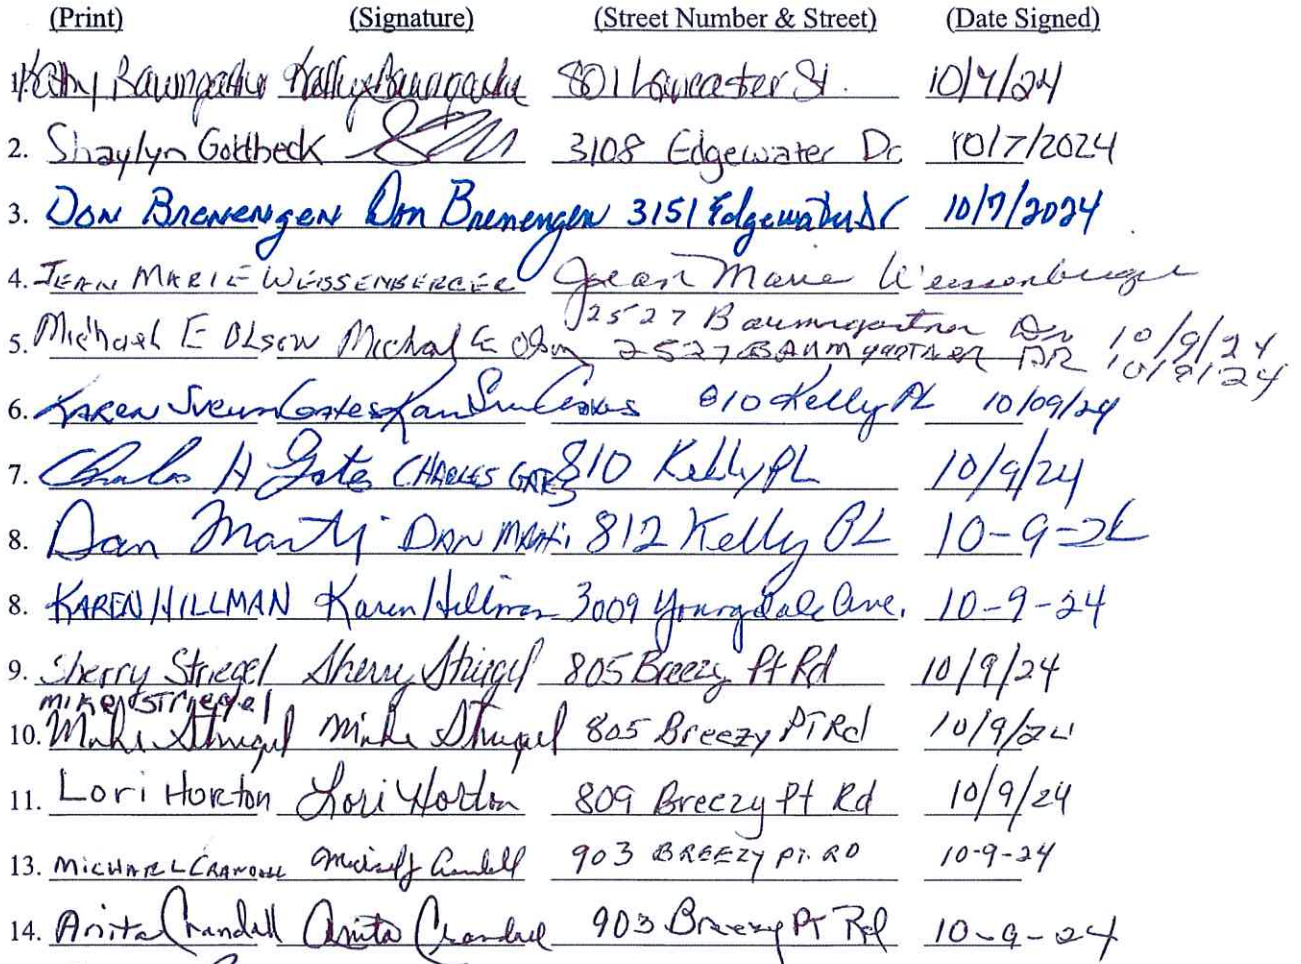 (Print) (Signature) (Street Number & Street) (Date Signed)
1. Kathy Baumgartner Kathy Baumgartner 801 Lancaster St. 10/7/24
2. Shaylyn Goldbeck 3108 Edgewater Dr 10/7/2024
3. Don Brenengen Don Brenengen 3151 Edgewater Dr 10/7/2024
4. JEAN MARIE WEISSENBERGER Jean Marie Weissenberger
2527 Baumgartner Dr 10/9/24
5. Michael E Olson Michael E Olson 2527 BAUMGARTNER DR 10/9/24
6. Karen Sveum Coates 810 Kelly PL 10/09/24
7. Charles H CHARLES 810 Kelly PL 10/9/24
8. Dan Marti Dan Marti 812 Kelly PL 10-9-24
8. KAREN HILLMAN Karen Hillman 3009 Youngdale Ave. 10-9-24
9. Sherry Striegel Sherry Striegel 805 Breezy Pt Rd 10/9/24
mike STriegel
10. Mike Striegel Mike Striegel 805 Breezy PT Rd 10/9/24
11. Lori Horton Lori Horton 809 Breezy Pt Rd 10/9/24
13. MICHAEL CRANDALL 903 BREEZY PT. RD 10-9-24
14. Anita Crandall Anita Crandall 903 Breezy PT Rd 10-9-24